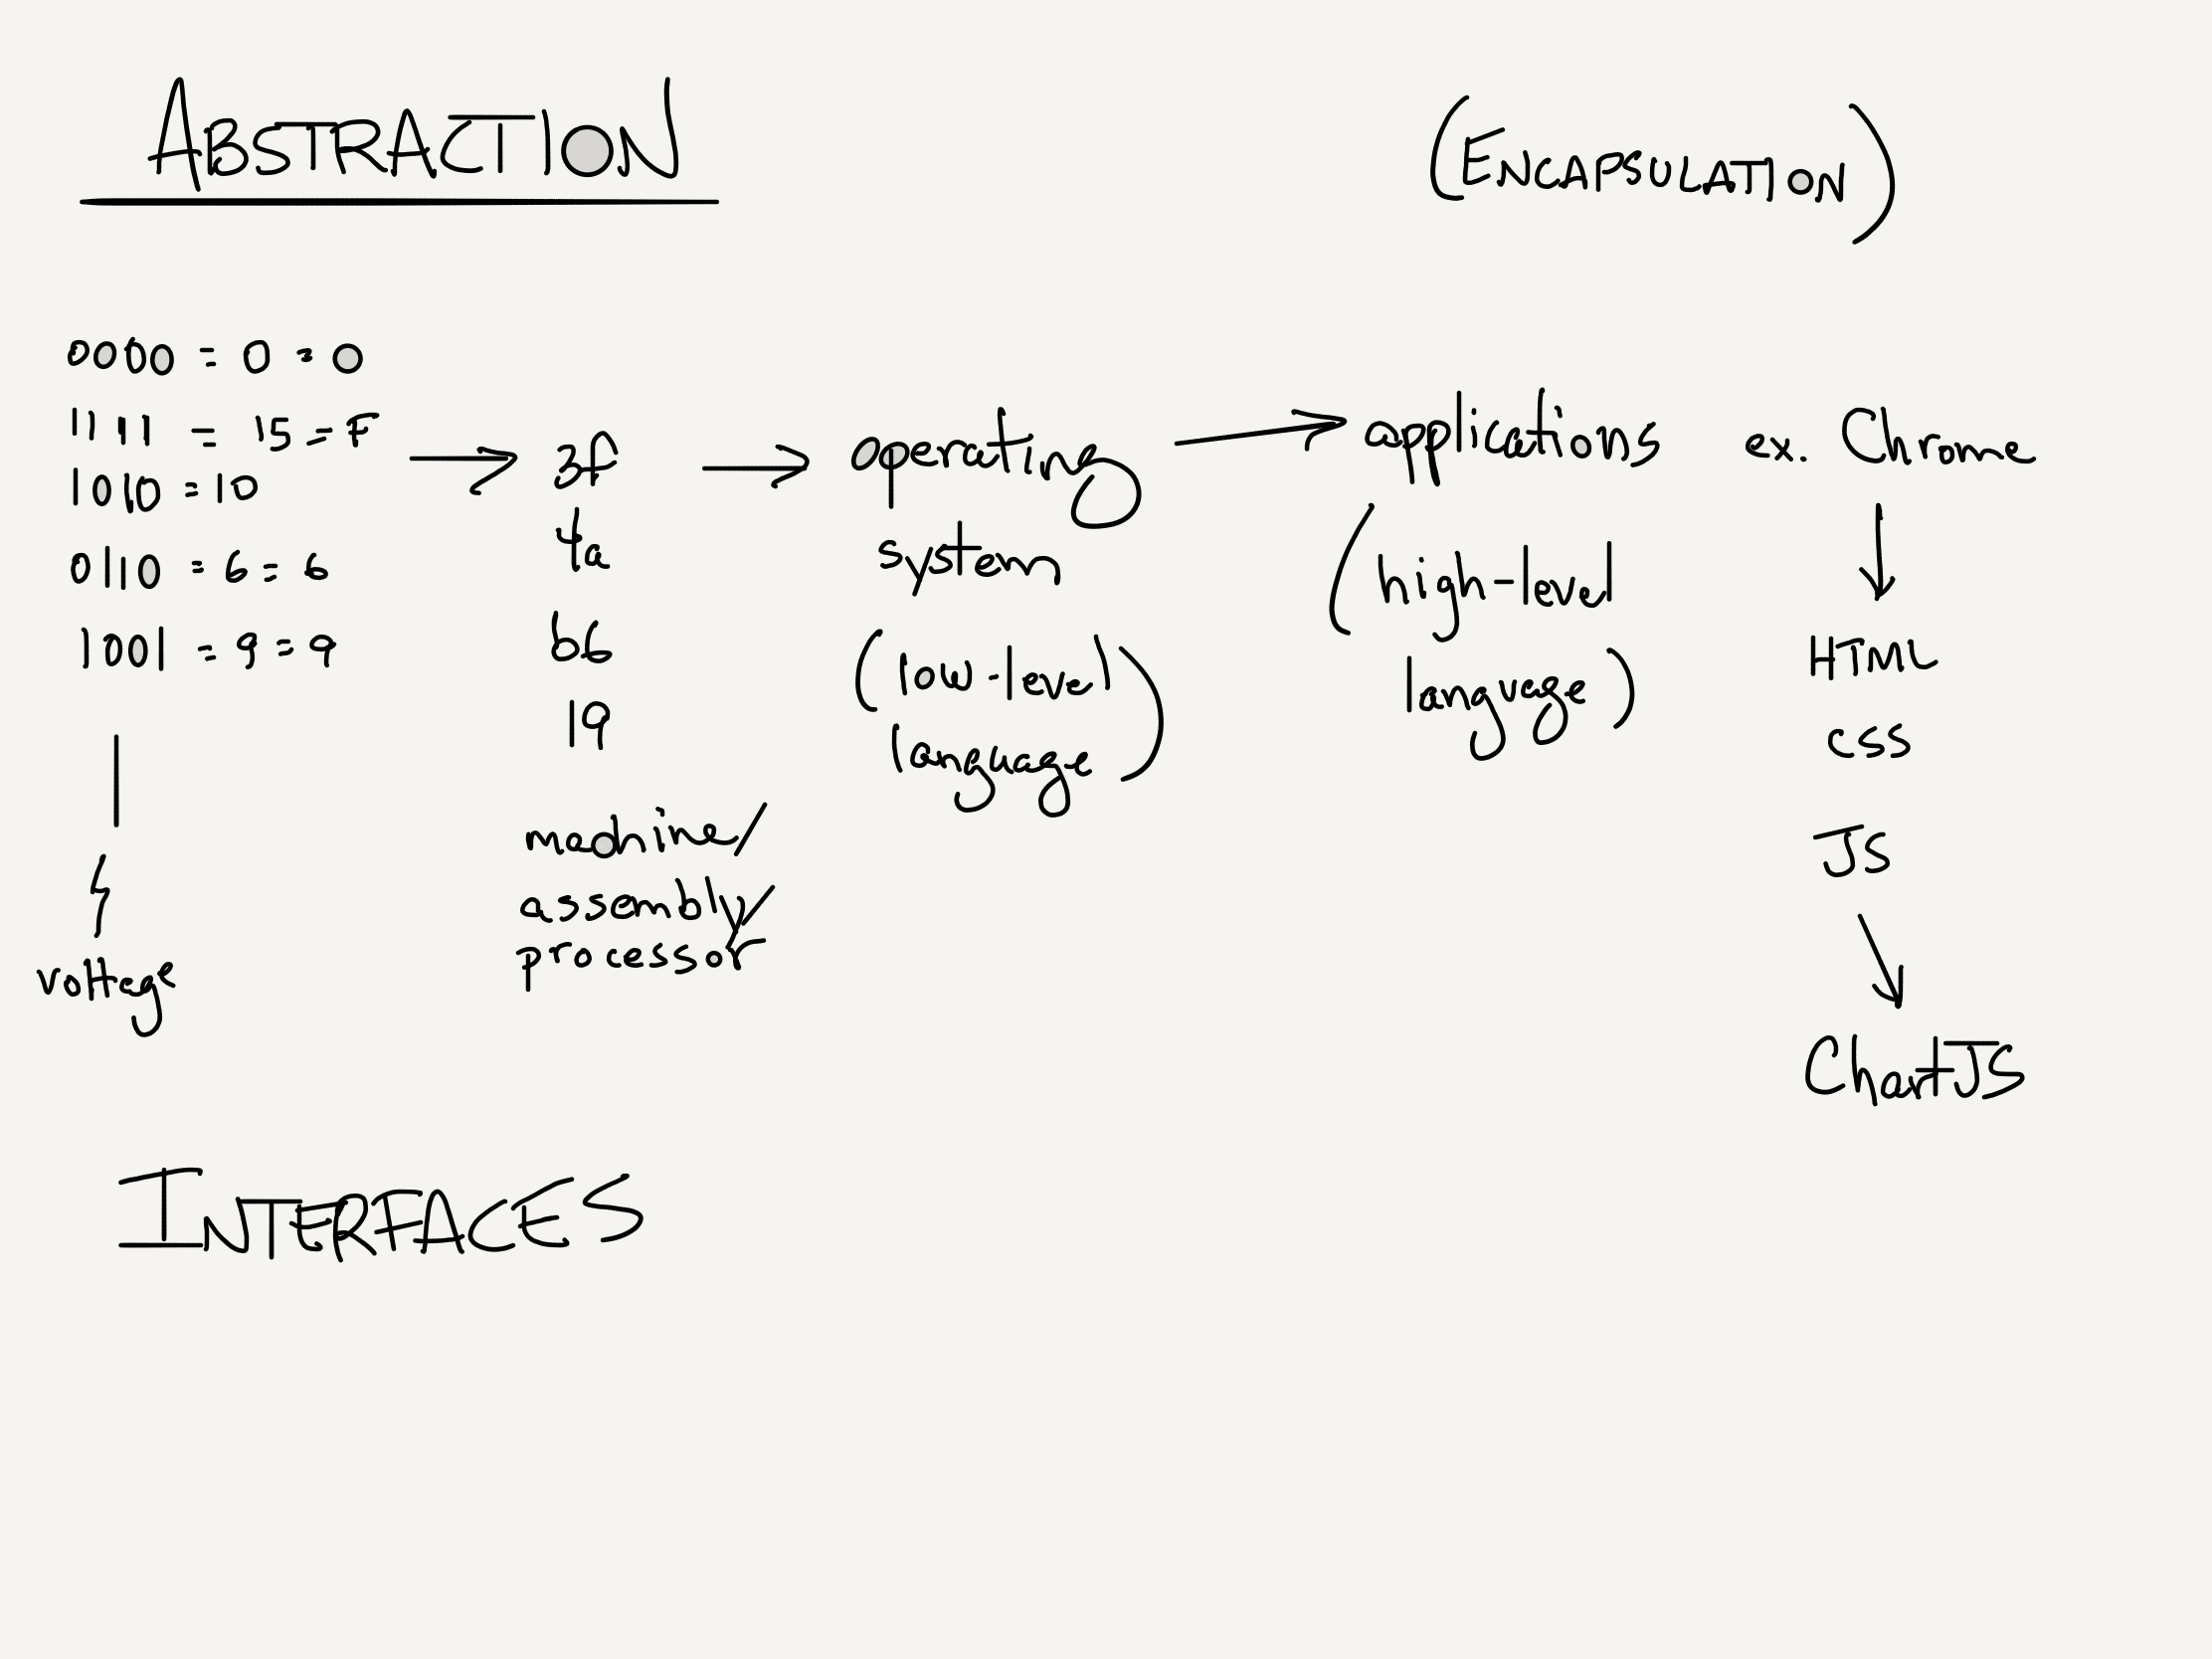 ABSTRACTION
(ENCAPSULATION)
0000 = 0 = 0
1111 = 15 = F
1010 = 10
0110 = 6 = 6
1001 = 9 = 9
voltage
3f
4a
b6
19
machine/
assembly/
processor
operating
system
(low-level
language)
applications
(high-level
language)
ex. Chrome
HTML
CSS
JS
ChartJS
INTERFACES